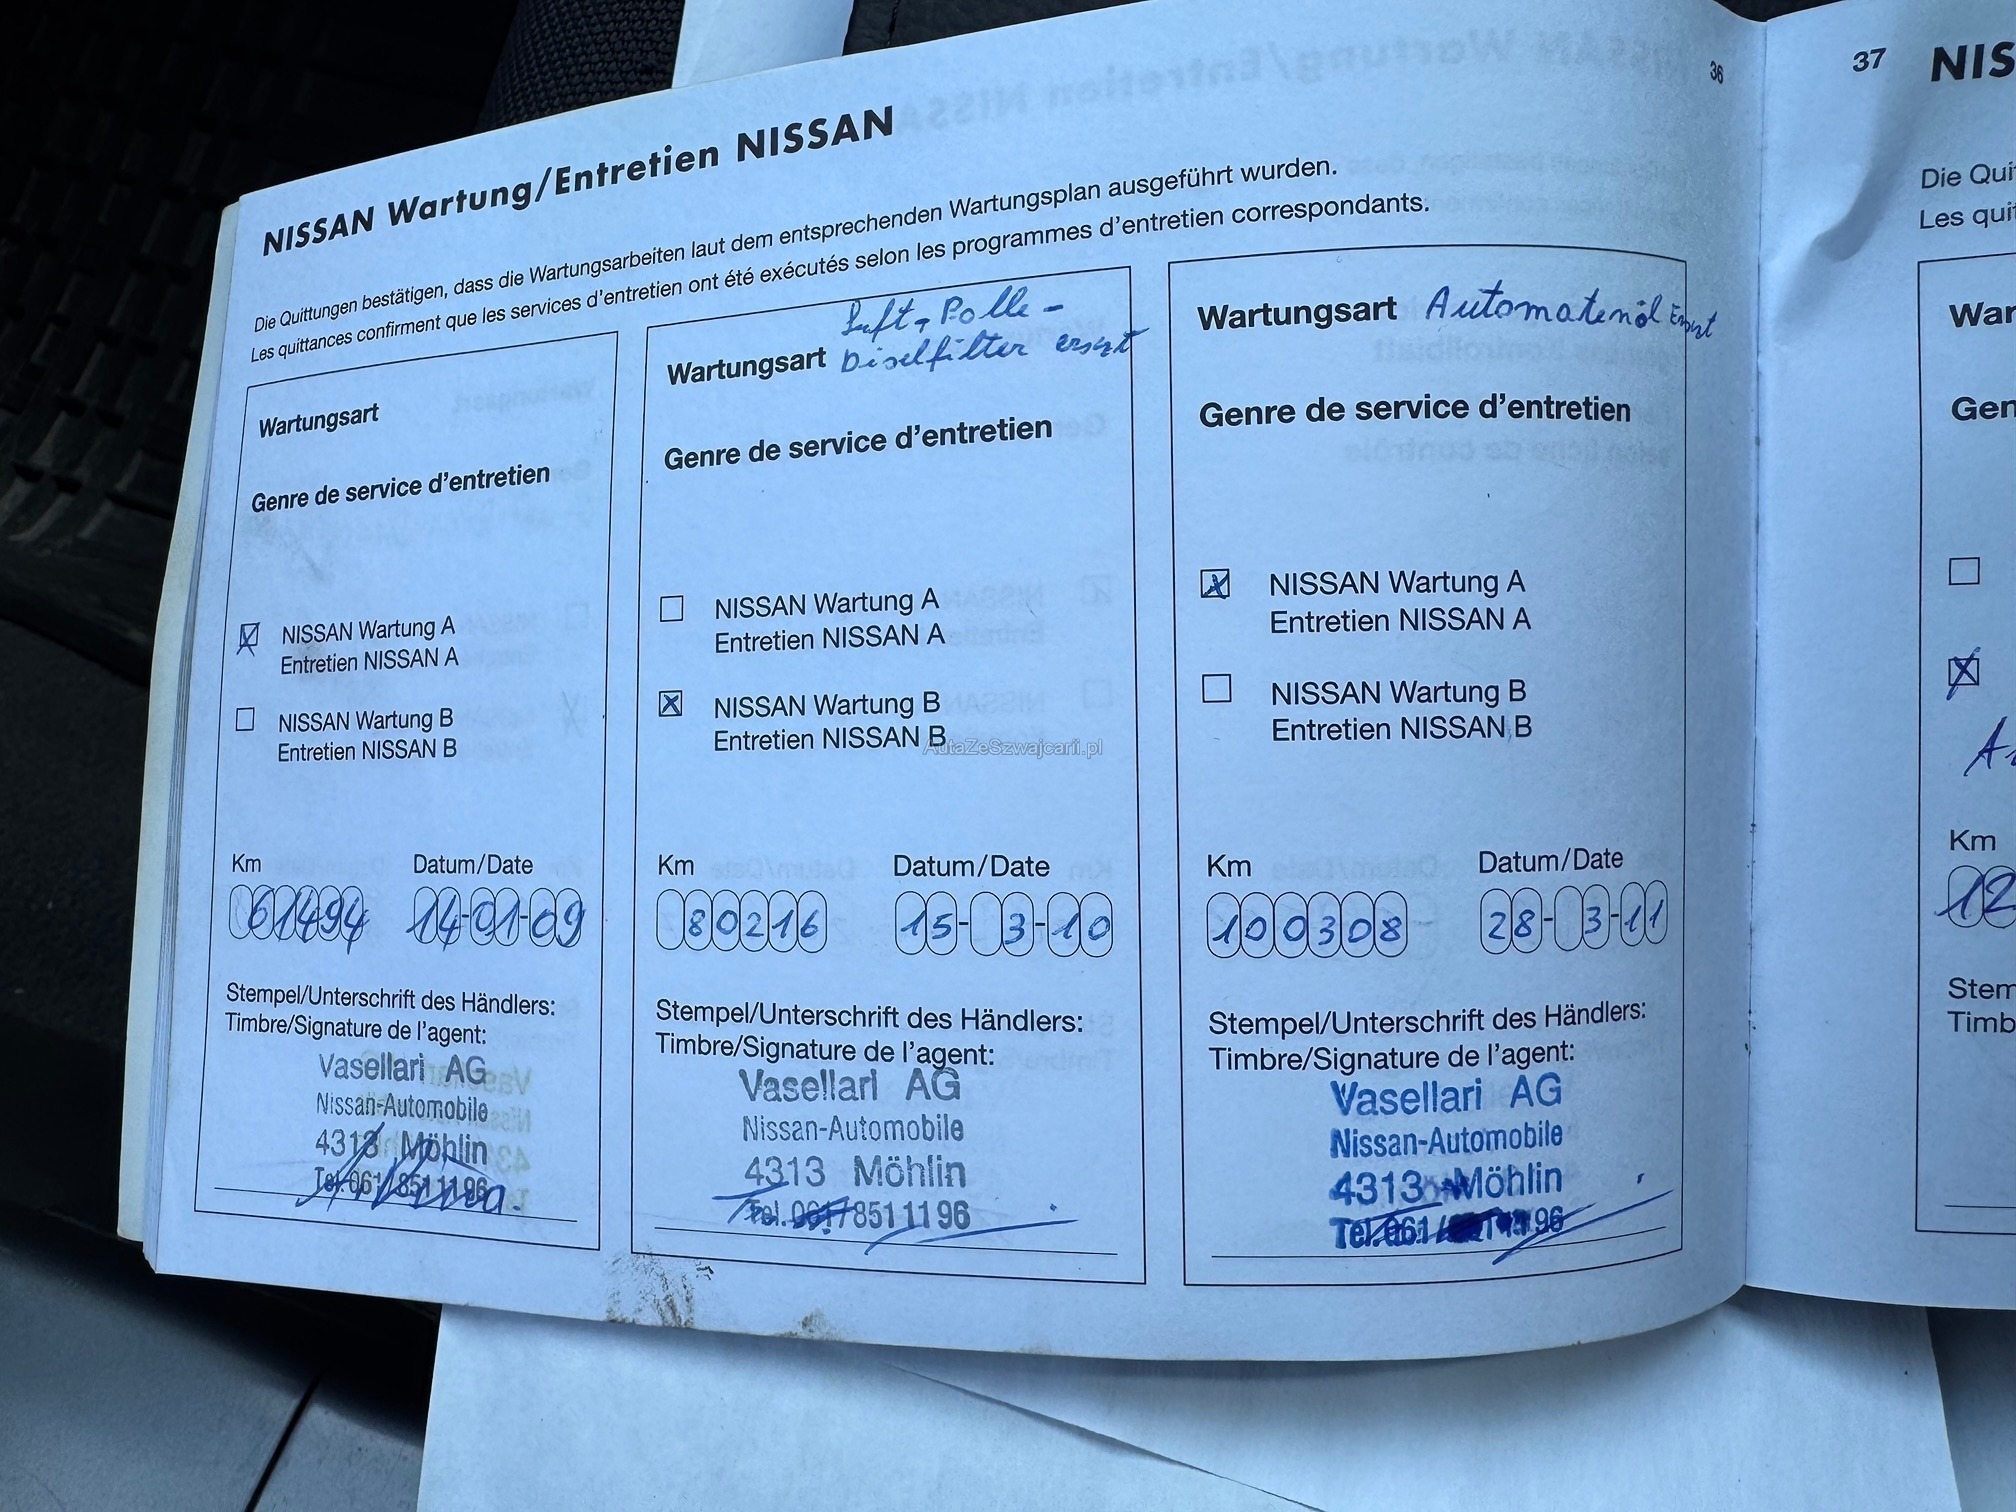 36
NISSAN Wartung/Entretien NISSAN
Die Quittungen bestätigen, dass die Wartungsarbeiten laut dem entsprechenden Wartungsplan ausgeführt wurden.
Les quittances confirment que les services d'entretien ont été exécutés selon les programmes d'entretien correspondants.
Wartungsart
Genre de service d'entretien
NISSAN Wartung A
Entretien NISSAN A
NISSAN Wartung B
Entretien NISSAN B
Km Datum/Date
61494 14-01-09
Stempel/Unterschrift des Händlers:
Timbre/Signature de l'agent:
Vasellari AG
Nissan-Automobile
4313 Möhlin
Tel. 061/851 11 96
Luft, Polle-
Wartungsart Diselfilter ersezt
Genre de service d'entretien
NISSAN Wartung A
Entretien NISSAN A
NISSAN Wartung B
Entretien NISSAN B
AutaZeSzwajcarii.pl
Km Datum/Date
80216 15-3-10
Stempel/Unterschrift des Händlers:
Timbre/Signature de l'agent:
Vasellari AG
Nissan-Automobile
4313 Möhlin
Tel. 061/851 11 96
Wartungsart Automatenöl
Genre de service d'entretien
NISSAN Wartung A
Entretien NISSAN A
NISSAN Wartung B
Entretien NISSAN B
Km Datum/Date
100308 28-3-11
Stempel/Unterschrift des Händlers:
Timbre/Signature de l'agent:
Vasellari AG
Nissan-Automobile
4313 Möhlin
Tel. 061/ 11 96
37
NIS
Die Qui
Les qui
War
Gen
Km
12
Stem
Timb